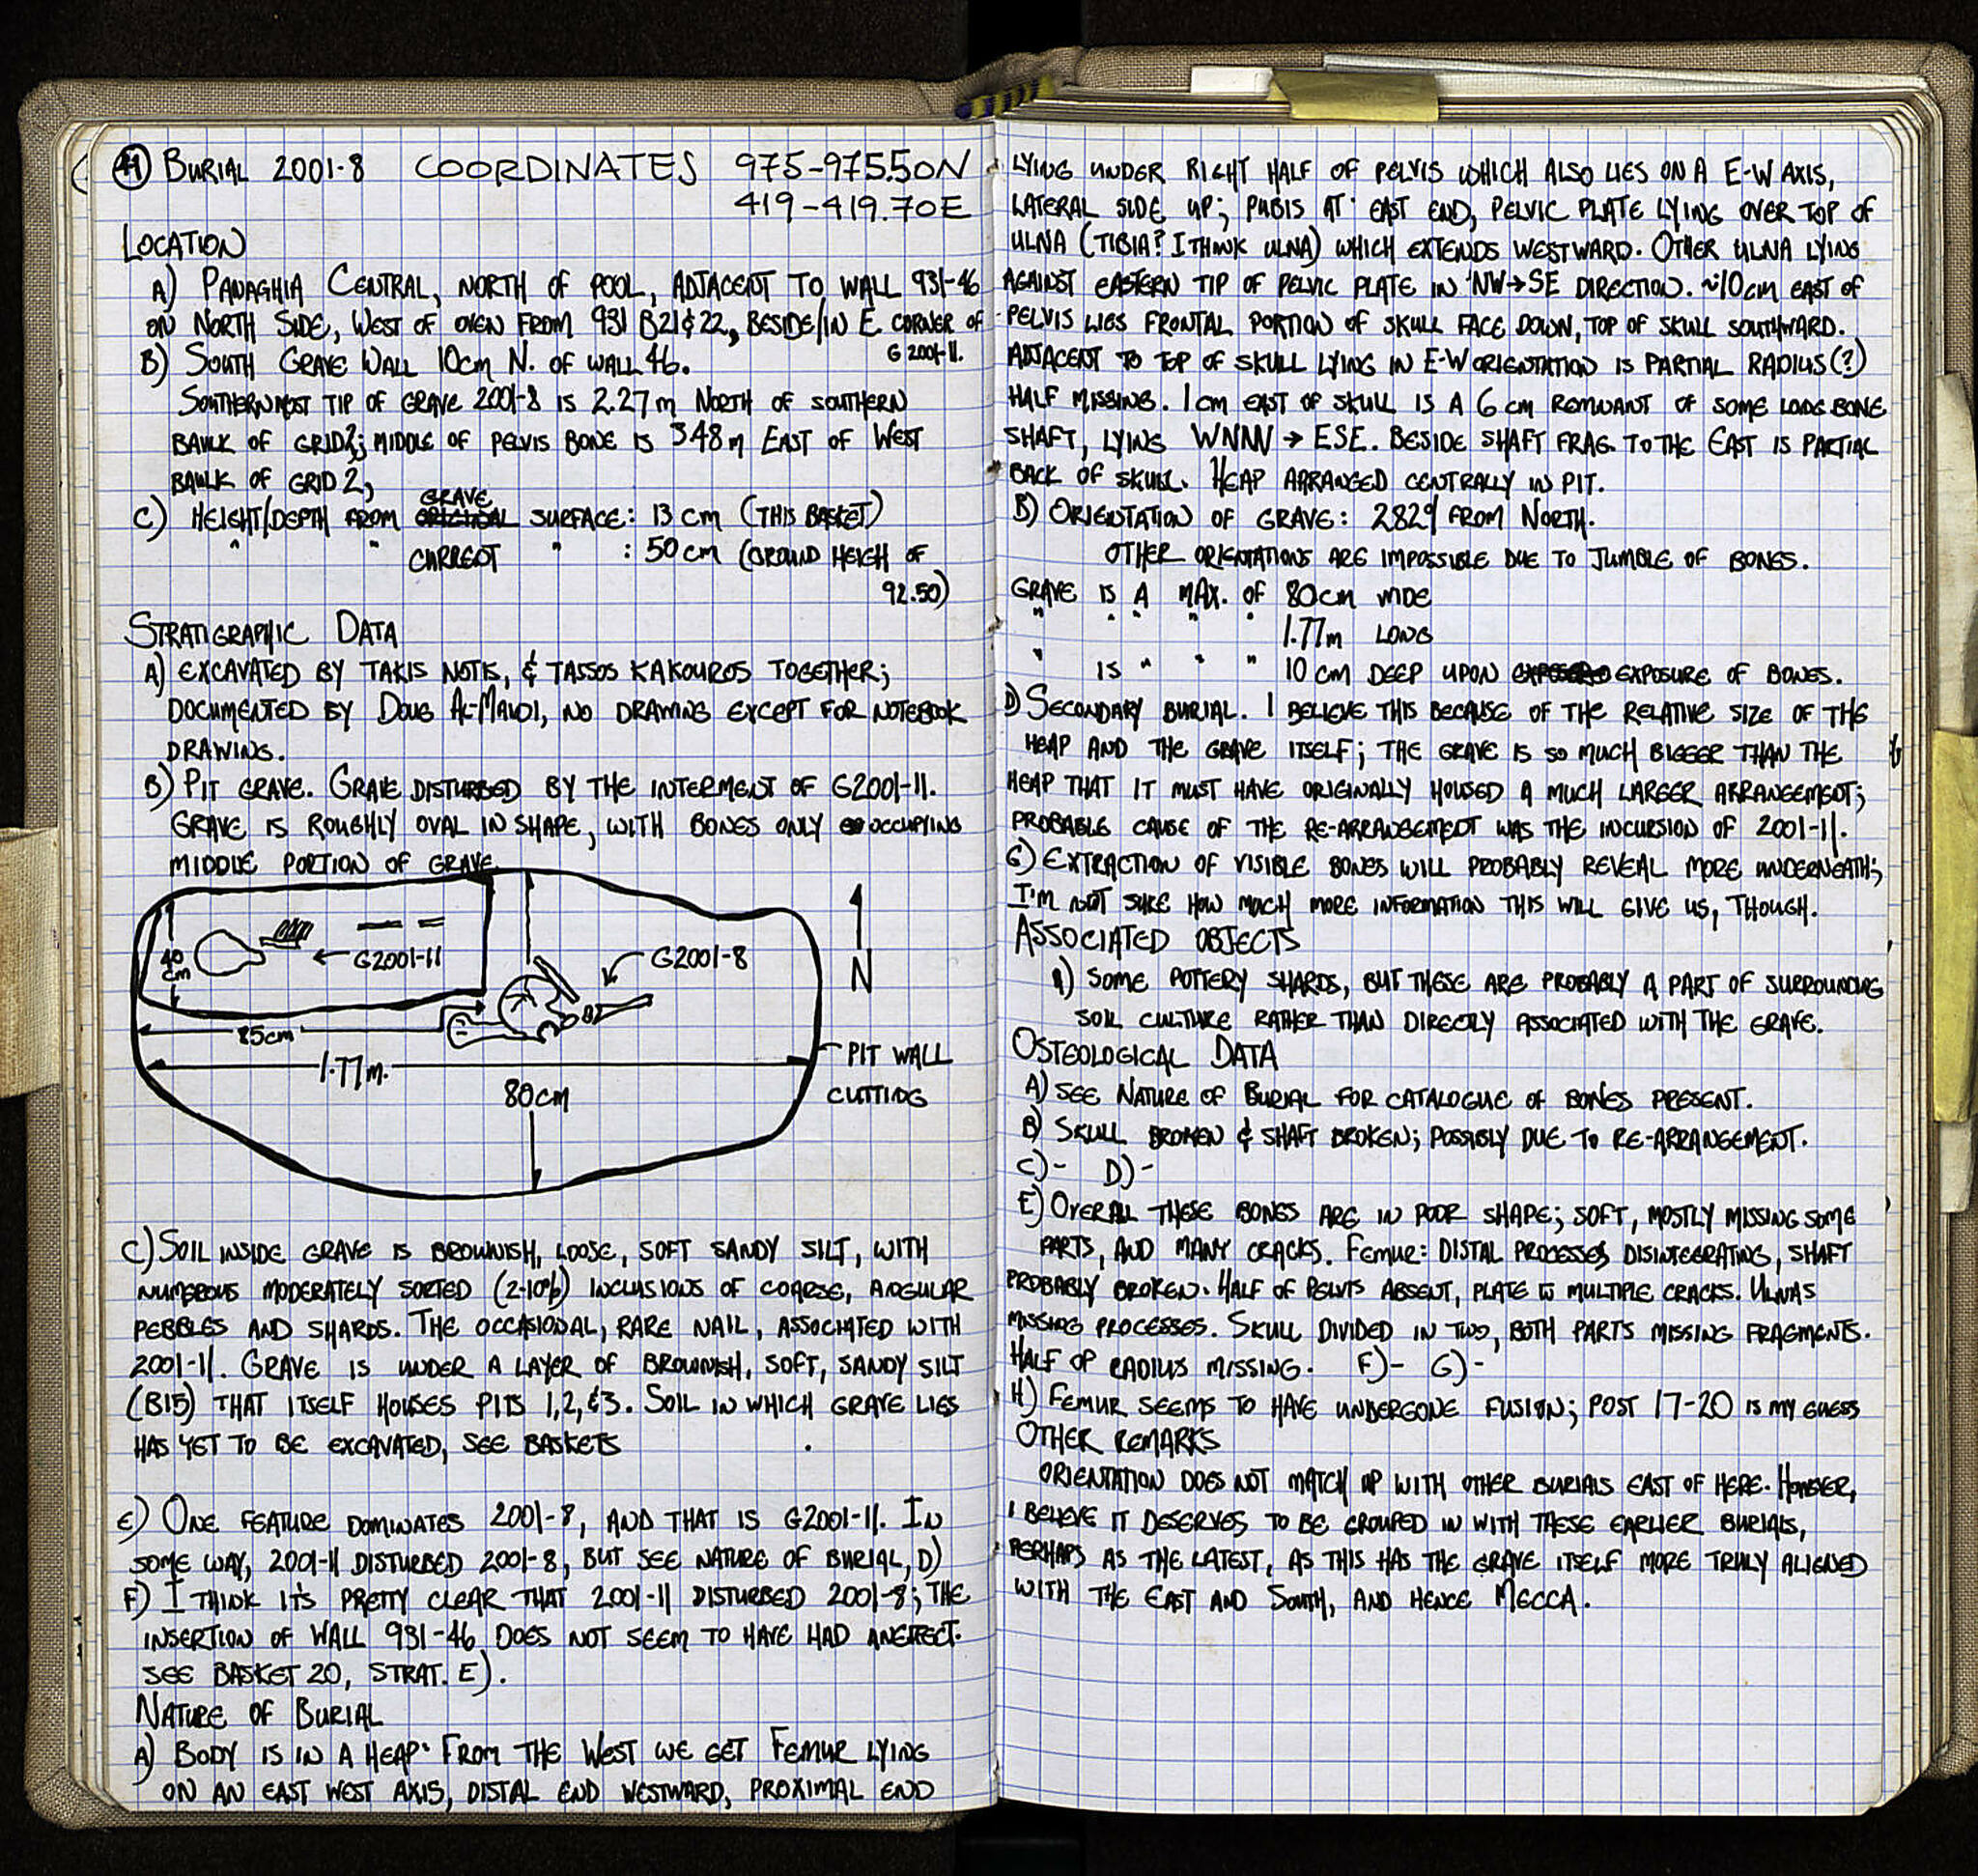 41 BURIAL 2001-8 COORDINATES 975-975.50N
419-419.70E
LOCATION
A) PANAGHIA CENTRAL, NORTH OF POOL, ADJACENT TO WALL 931-46
ON NORTH SIDE, WEST OF OVEN FROM 931 B21&22, BESIDE/IN E CORNER OF
G 2001-11.
B) SOUTH GRAVE WALL 10cm N. OF WALL 46.
SOUTHERNMOST TIP OF GRAVE 2001-8 IS 2.27m NORTH OF SOUTHERN
BAULK OF GRID 2; MIDDLE OF PELVIS BONE IS 3.48m EAST OF WEST
BAULK OF GRID 2,
C) HEIGHT/DEPTH FROM GRAVE SURFACE: 13 cm (THIS BASKET)
" " CURRENT " : 50cm (GROUND HEIGH OF
92.50)
STRATIGRAPHIC DATA
A) EXCAVATED BY TAKIS NOTIS, & TASSOS KAKOUROS TOGETHER;
DOCUMENTED BY DOUG AL-MAINI, NO DRAWING EXCEPT FOR NOTEBOOK
DRAWING.
B) PIT GRAVE. GRAVE DISTURBED BY THE INTERMENT OF G2001-11.
GRAVE IS ROUGHLY OVAL IN SHAPE, WITH BONES ONLY OCCUPYING
MIDDLE PORTION OF GRAVE
40 cm
G2001-11
G2001-8
N
85cm
1.77m.
80cm
PIT WALL
CUTTING
C) SOIL INSIDE GRAVE IS BROWNISH, LOOSE, SOFT SANDY SILT, WITH
NUMEROUS MODERATELY SORTED (2-10%) INCLUSIONS OF COARSE, ANGULAR
PEBBLES AND SHARDS. THE OCCASIONAL, RARE NAIL, ASSOCIATED WITH
2001-11. GRAVE IS UNDER A LAYER OF BROWNISH, SOFT, SANDY SILT
(B15) THAT ITSELF HOUSES PITS 1,2,&3. SOIL IN WHICH GRAVE LIES
HAS YET TO BE EXCAVATED, SEE BASKETS
E) ONE FEATURE DOMINATES 2001-8, AND THAT IS G2001-11. IN
SOME WAY, 2001-11 DISTURBED 2001-8, BUT SEE NATURE OF BURIAL, D)
F) I THINK IT'S PRETTY CLEAR THAT 2001-11 DISTURBED 2001-8; THE
INSERTION OF WALL 931-46 DOES NOT SEEM TO HAVE HAD AN EFFECT.
SEE BASKET 20, STRAT. E).
NATURE OF BURIAL
A) BODY IS IN A HEAP. FROM THE WEST WE GET FEMUR LYING
ON AN EAST WEST AXIS, DISTAL END WESTWARD, PROXIMAL END
LYING UNDER RIGHT HALF OF PELVIS WHICH ALSO LIES ON A E-W AXIS,
LATERAL SIDE UP; PUBIS AT EAST END, PELVIC PLATE LYING OVER TOP OF
ULNA (TIBIA? I THINK ULNA) WHICH EXTENDS WESTWARD. OTHER ULNA LYING
AGAINST EASTERN TIP OF PELVIC PLATE IN NW→SE DIRECTION. ~10cm EAST OF
PELVIS LIES FRONTAL PORTION OF SKULL FACE DOWN, TOP OF SKULL SOUTHWARD.
ADJACENT TO TOP OF SKULL LYING IN E-W ORIENTATION IS PARTIAL RADIUS(?)
HALF MISSING. 1cm EAST OF SKULL IS A 6cm REMNANT OF SOME LONG BONE
SHAFT, LYING WNW → ESE. BESIDE SHAFT FRAG. TO THE EAST IS PARTIAL
BACK OF SKULL. HEAP ARRANGED CENTRALLY IN PIT.
B) ORIENTATION OF GRAVE: 282° FROM NORTH.
OTHER ORIENTATIONS ARE IMPOSSIBLE DUE TO JUMBLE OF BONES.
GRAVE IS A MAX. OF 80cm WIDE
" " " " " 1.77m LONG
" IS " " " 10cm DEEP UPON EXPOSURE OF BONES.
D) SECONDARY BURIAL. I BELIEVE THIS BECAUSE OF THE RELATIVE SIZE OF THE
HEAP AND THE GRAVE ITSELF; THE GRAVE IS SO MUCH BIGGER THAN THE
HEAP THAT IT MUST HAVE ORIGINALLY HOUSED A MUCH LARGER ARRANGEMENT;
PROBABLE CAUSE OF THE RE-ARRANGEMENT WAS THE INCURSION OF 2001-11.
G) EXTRACTION OF VISIBLE BONES WILL PROBABLY REVEAL MORE UNDERNEATH;
I'M NOT SURE HOW MUCH MORE INFORMATION THIS WILL GIVE US, THOUGH.
ASSOCIATED OBJECTS
A) SOME POTTERY SHARDS, BUT THESE ARE PROBABLY A PART OF SURROUNDING
SOIL CULTURE RATHER THAN DIRECTLY ASSOCIATED WITH THE GRAVE.
OSTEOLOGICAL DATA
A) SEE NATURE OF BURIAL FOR CATALOGUE OF BONES PRESENT.
B) SKULL BROKEN & SHAFT BROKEN; POSSIBLY DUE TO RE-ARRANGEMENT.
C)- D)-
E) OVERALL THESE BONES ARE IN POOR SHAPE; SOFT, MOSTLY MISSING SOME
PARTS, AND MANY CRACKS. FEMUR: DISTAL PROCESSES DISINTEGRATING, SHAFT
PROBABLY BROKEN. HALF OF PELVIS ABSENT, PLATE IS MULTIPLE CRACKS. ULNAS
MISSING PROCESSES. SKULL DIVIDED IN TWO, BOTH PARTS MISSING FRAGMENTS.
HALF OF RADIUS MISSING. F)- G)-
H) FEMUR SEEMS TO HAVE UNDERGONE FUSION; POST 17-20 IS MY GUESS
OTHER REMARKS
ORIENTATION DOES NOT MATCH UP WITH OTHER BURIALS EAST OF HERE. HOWEVER,
I BELIEVE IT DESERVES TO BE GROUPED IN WITH THESE EARLIER BURIALS,
PERHAPS AS THE LATEST, AS THIS HAS THE GRAVE ITSELF MORE TRULY ALIGNED
WITH THE EAST AND SOUTH, AND HENCE MECCA.